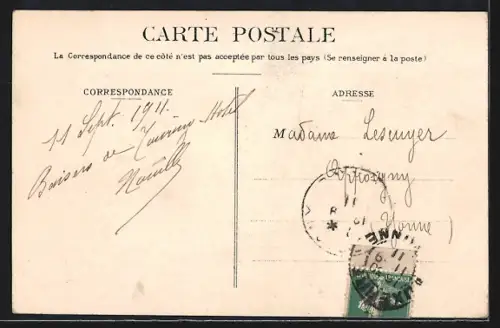 CARTE POSTALE
La Correspondance de ce côté n'est pas acceptée par tous les pays (Se renseigner à la poste)
CORRESPONDANCE
11 Sept. 1911.
Baisers de Touring-Hotel
ADRESSE
Madame
Appoigny
(Yonne)